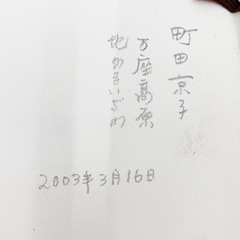 町田京子
万座高原
地かまいざわ
2003年3月16日